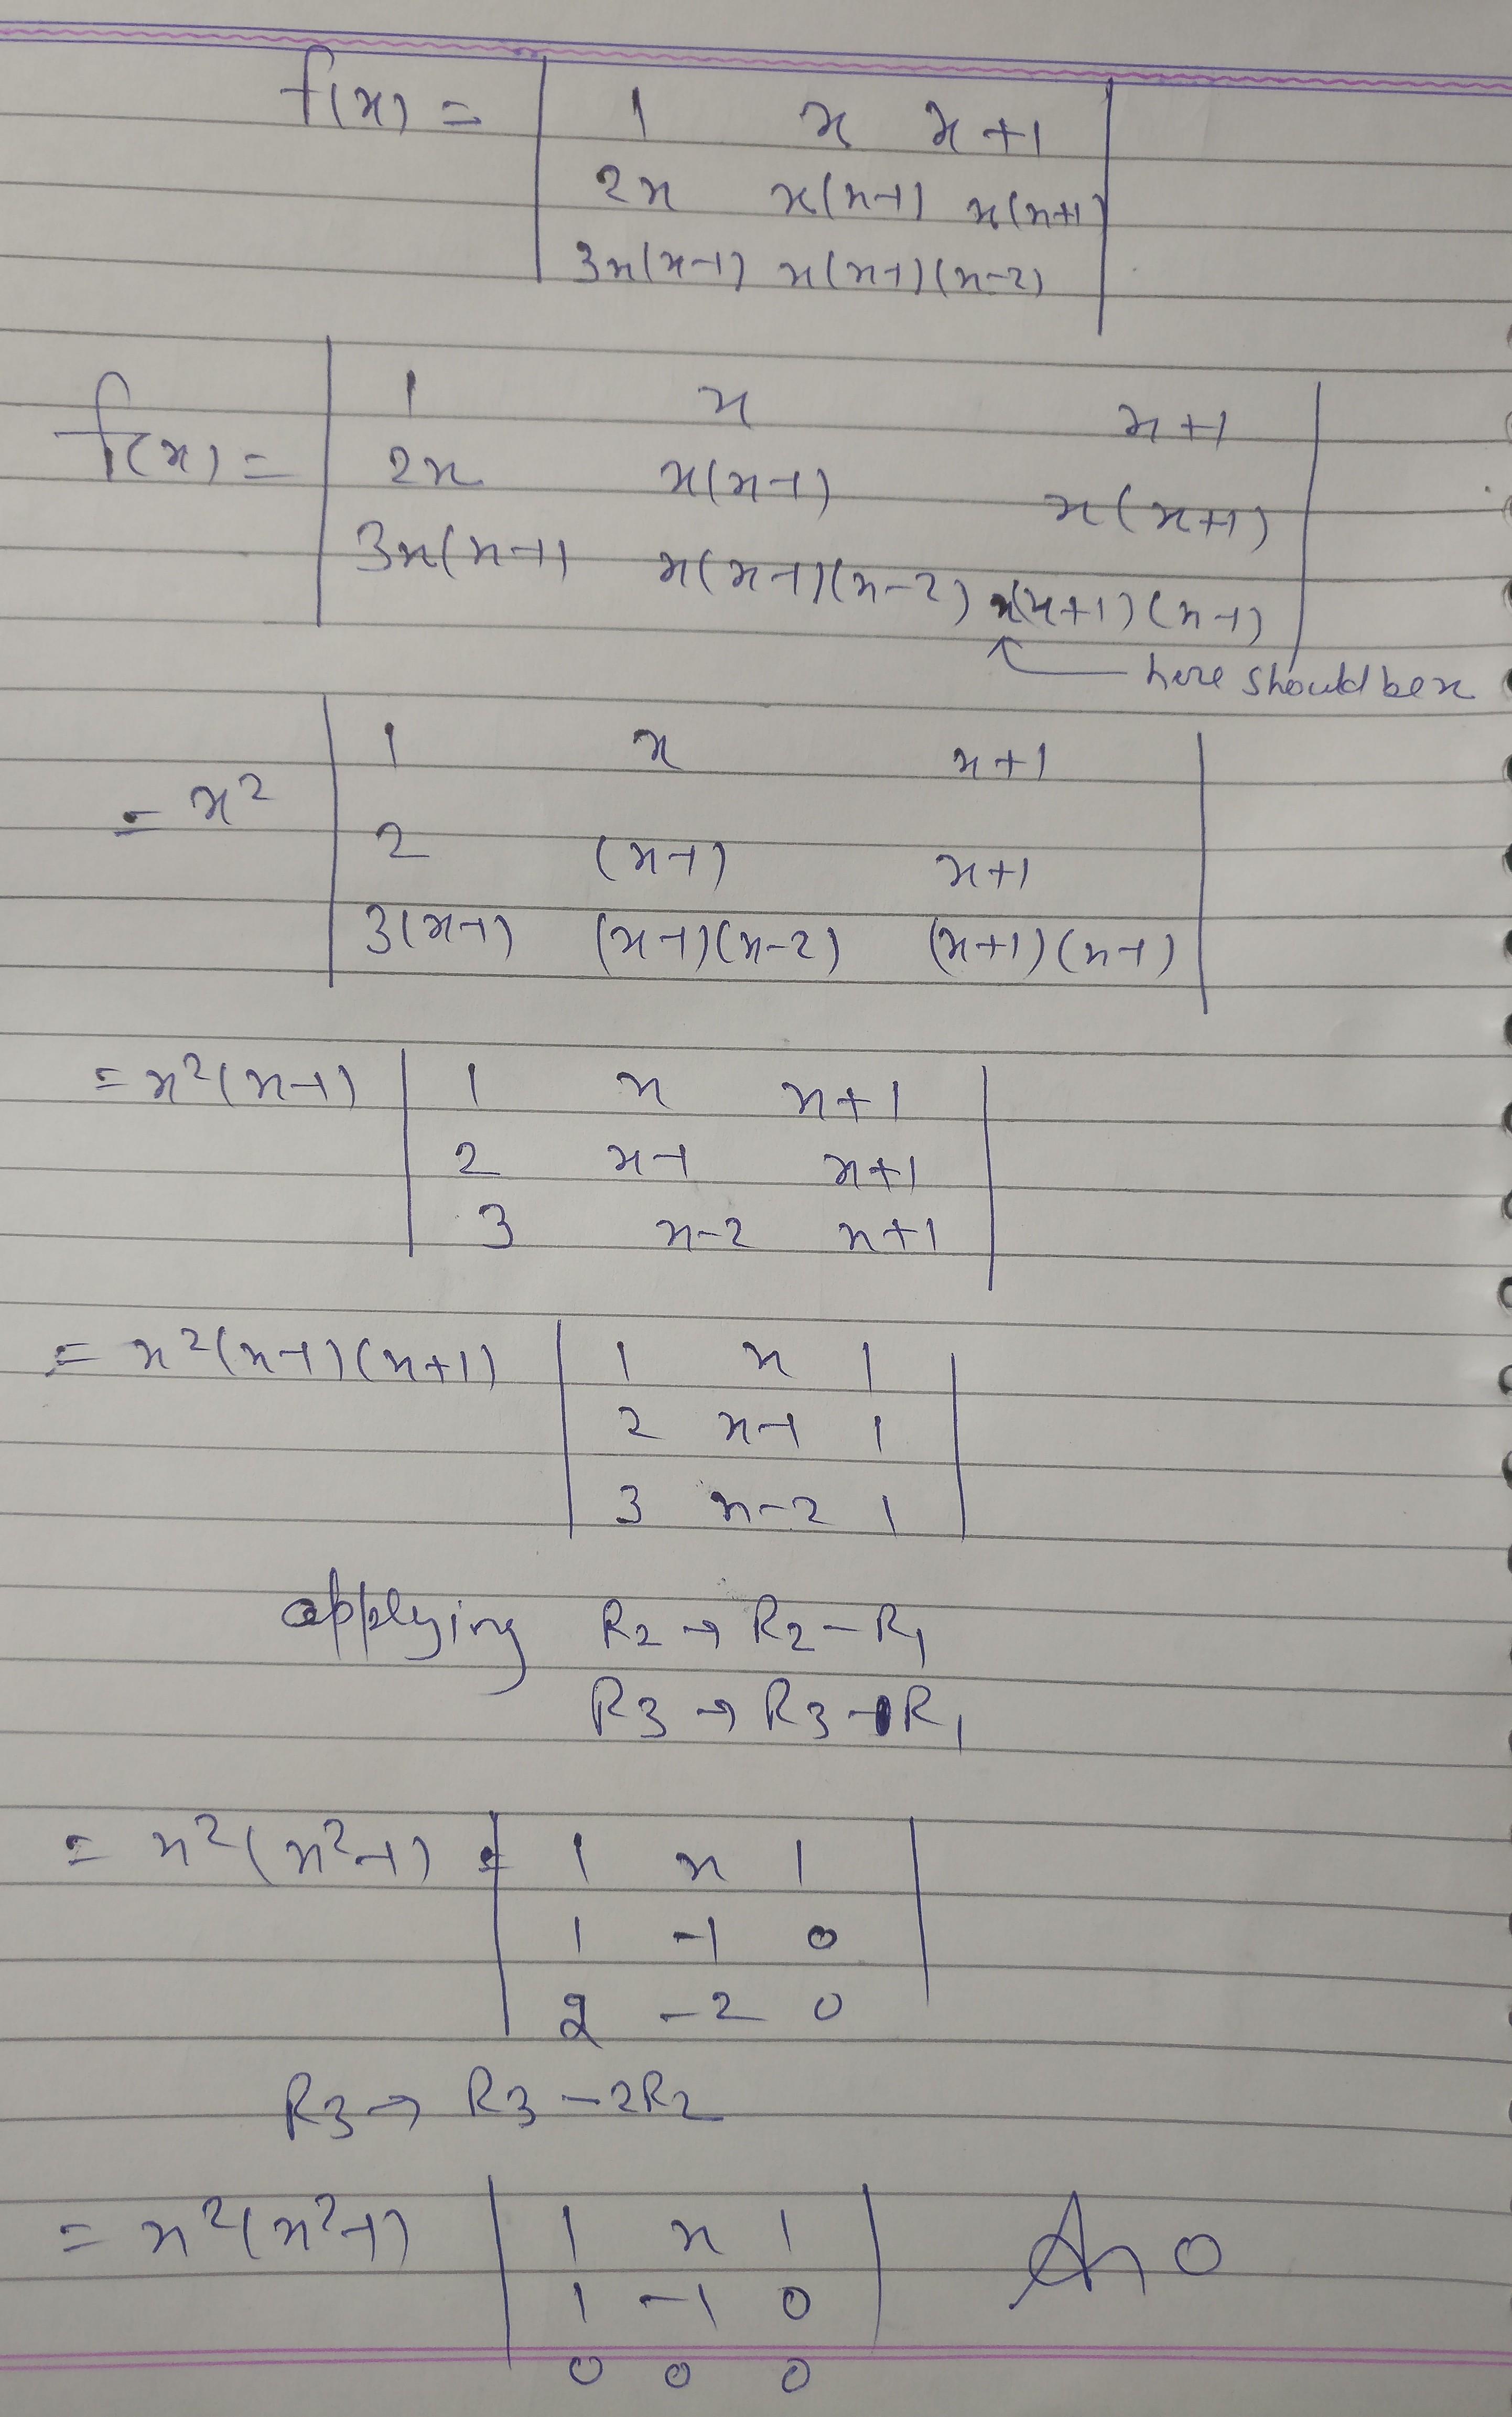 f(x) = | 1 x x+1 |
| 2x x(x-1) x(x+1) |
| 3x(x-1) x(x-1)(x-2) |
f(x) = | 1 x x+1 |
| 2x x(x-1) x(x+1) |
| 3x(x-1) x(x-1)(x-2) x(x+1)(x-1) |
↖ here should be x
= x² | 1 x x+1 |
| 2 (x-1) x+1 |
| 3(x-1) (x-1)(x-2) (x+1)(x-1) |
= x²(x-1) | 1 x x+1 |
| 2 x-1 x+1 |
| 3 x-2 x+1 |
= x²(x-1)(x+1) | 1 x 1 |
| 2 x-1 1 |
| 3 x-2 1 |
applying R2 → R2 - R1
R3 → R3 - R1
= x²(x²-1) | 1 x 1 |
| 1 -1 0 |
| 2 -2 0 |
R3 → R3 - 2R2
= x²(x²-1) | 1 x 1 | An 0
| 1 -1 0 |
| 0 0 0